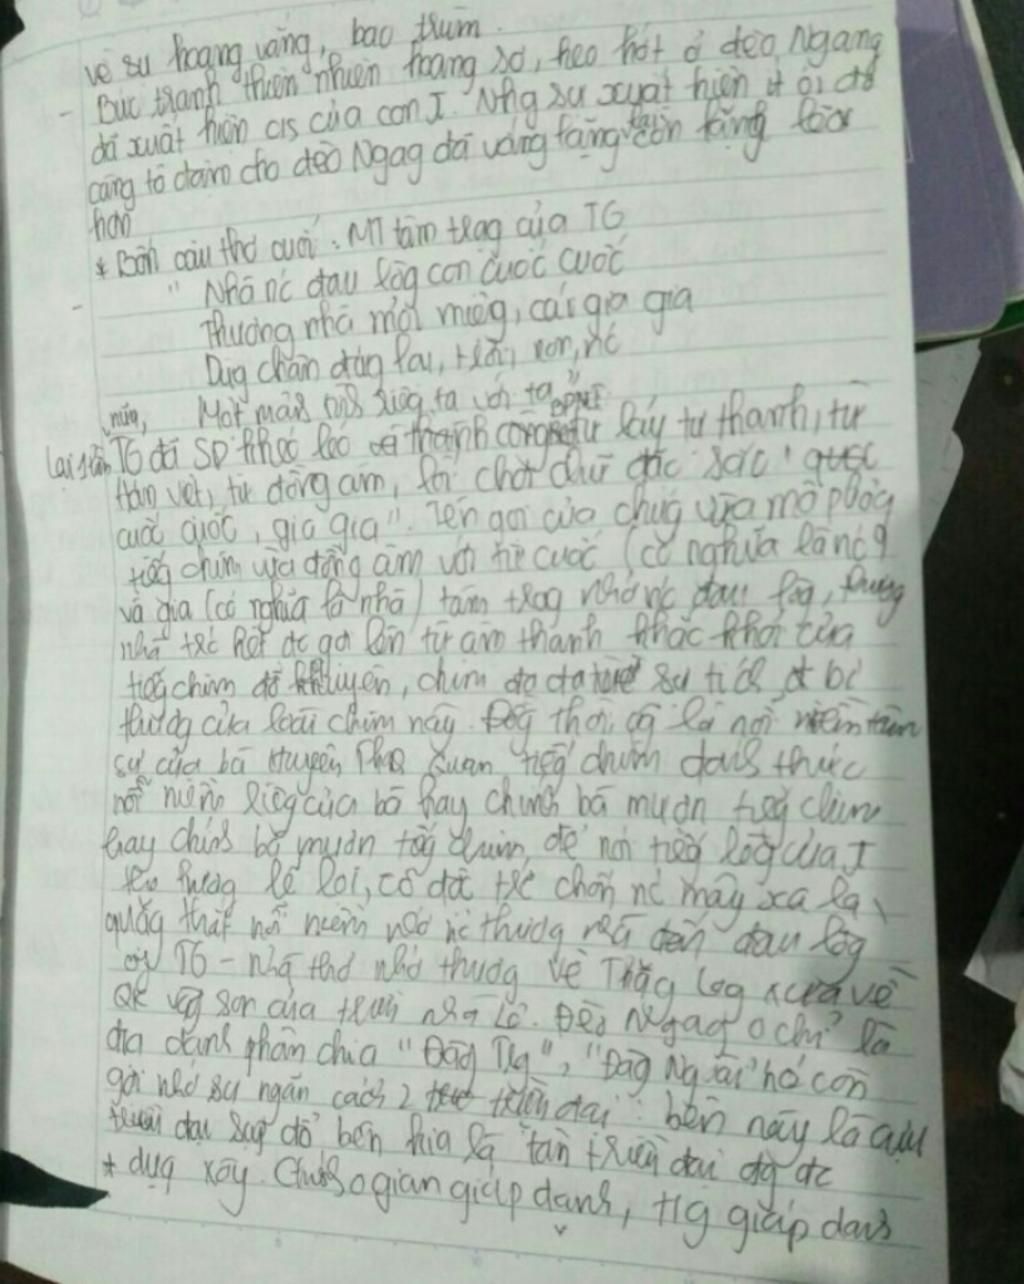 về sự hoang vắng, bao trùm.
- Bức tranh thiên nhiên hoang sơ, heo hót ở đèo Ngang
đã xuất hiện c/s của con I. Nhg sự xuất hiện ít ỏi đó
càng tô đậm cho đèo Ngag đã vắng lặng lại còn lặng lẽ
hơn
* Bốn câu thơ cuối: MT tâm trạg của TG
- " Nhớ nc đau lòg con cuốc cuốc
Thương nhà mỏi miệg, cái gia gia
Dừg chân đứg lại, trời, non, nc
Một mảnh tình riêg, ta với ta "
nữa,
Lại lần TG đã SD khéo léo thành công BPNT từ láy tự thanh, từ
Hán Việt, từ đồng âm, lối chơi chữ đặc sắc " quốc
cuốc cuốc, gia gia". Tên gọi của chúg vừa mô phỏg
tiếg chim vừa đồng âm với từ cuốc (có nghĩa là nc)
và gia (có nghĩa là nhà) tâm trạg nhớ nc đau lòg, thươg
nhà trc hết đc gợi lên từ âm thanh khắc khoải của
tiếg chim đỗ quyên, chim đa đa từ sự tích bi
thươg của loài chim này. Đồg thời cg là nỗi niềm tâm
sự của bà Huyện Thh Quan tiếg chim đánh thức
nỗi niềm riêg của bà hay chính bà mượn tiếg chim
hay chính bà mượn tiếg chim, để nói tiếg lòg của I
lẻ loi, cô độc trc chốn nc mây xa lạ,
quặg thắt nỗi niềm nhớ nc thươg nhà đến đau lòg
ơi TG - nhà thơ nhớ thươg về Thăg Log xưa về
QK vàg son của triều nhà Lê. Đèo Ngag o chỉ là
địa danh phân chia "Đàg Tg", "Đàg Ngoài" nó còn
gợi nhớ sự ngăn cách 2 triều đại: bên này là cựu
triều đại sụp đổ bên kia là tân triều đại đg đc
* dựg xây. Chính o gian giáp danh, t/g giáp danh